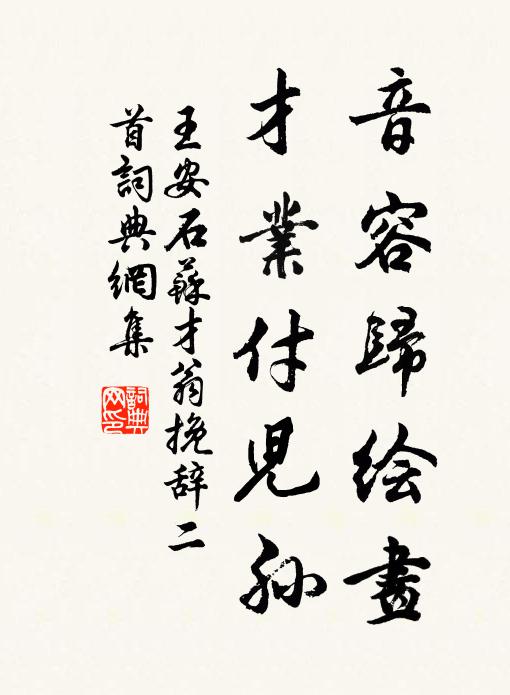 音容歸绘畫
才業付児孙
王安石蘇才翁挽辞二
首詞典網集
詞典网印